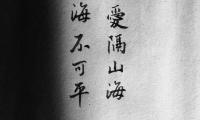 愛隔山海
海不可平